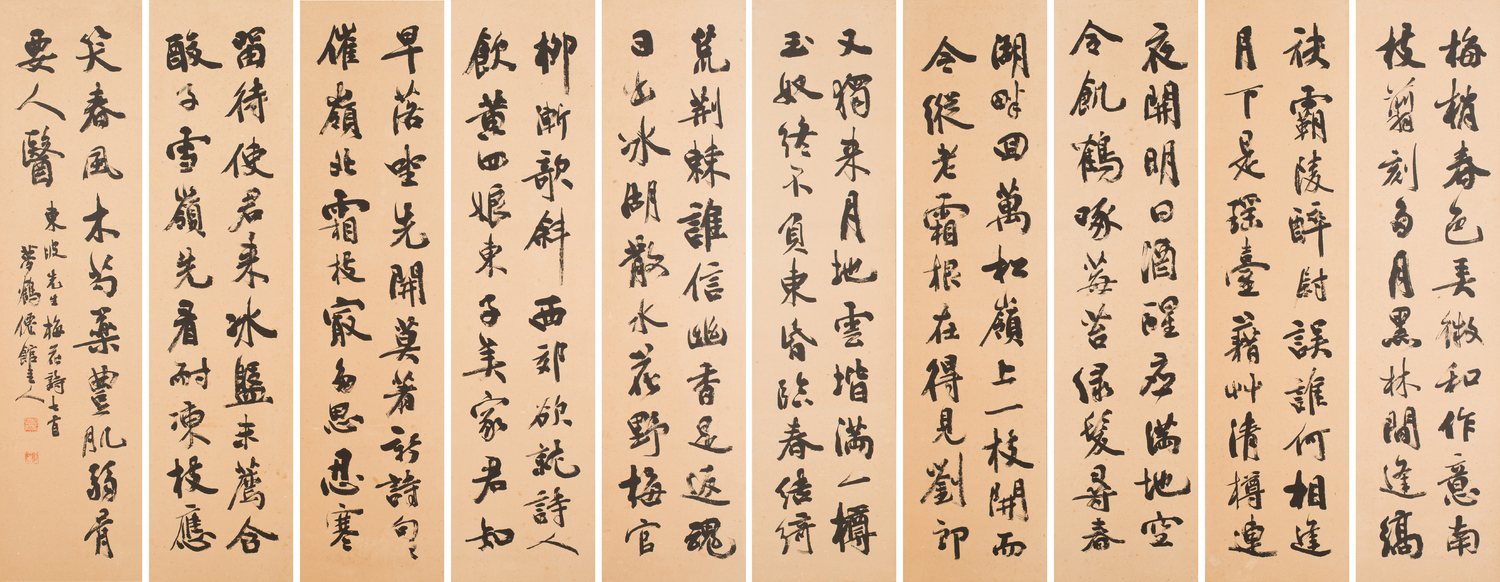 梅梢春色弄微和作意南
枝剪刻多月黑林間逢縞
袂霸陵醉尉誤誰何相逢
月下是瑤臺藉艸清樽連
夜開明日酒醒應滿地空
令飢鶴啄莓苔綠髮尋春
湖畔回萬松嶺上一枝開而
今縱老霜根在得見劉郎
又獨來月地雲堦滿一樽
玉奴終不負東昏臨春結綺
荒荊棘誰信幽香是返魂
日出冰湖散水花野梅官
柳漸歌斜西郊欲就詩人
飲黃四娘東子美家君知
早落坐先開莫著新詩句句
催嶺北霜枝最多思忍寒
留待使君來冰盤未薦含
酸子雪嶺先看耐凍枝應
笑春風木芍藥豐肌弱骨
要人醫
東坡先生梅花詩七首
夢鶴僊館主人